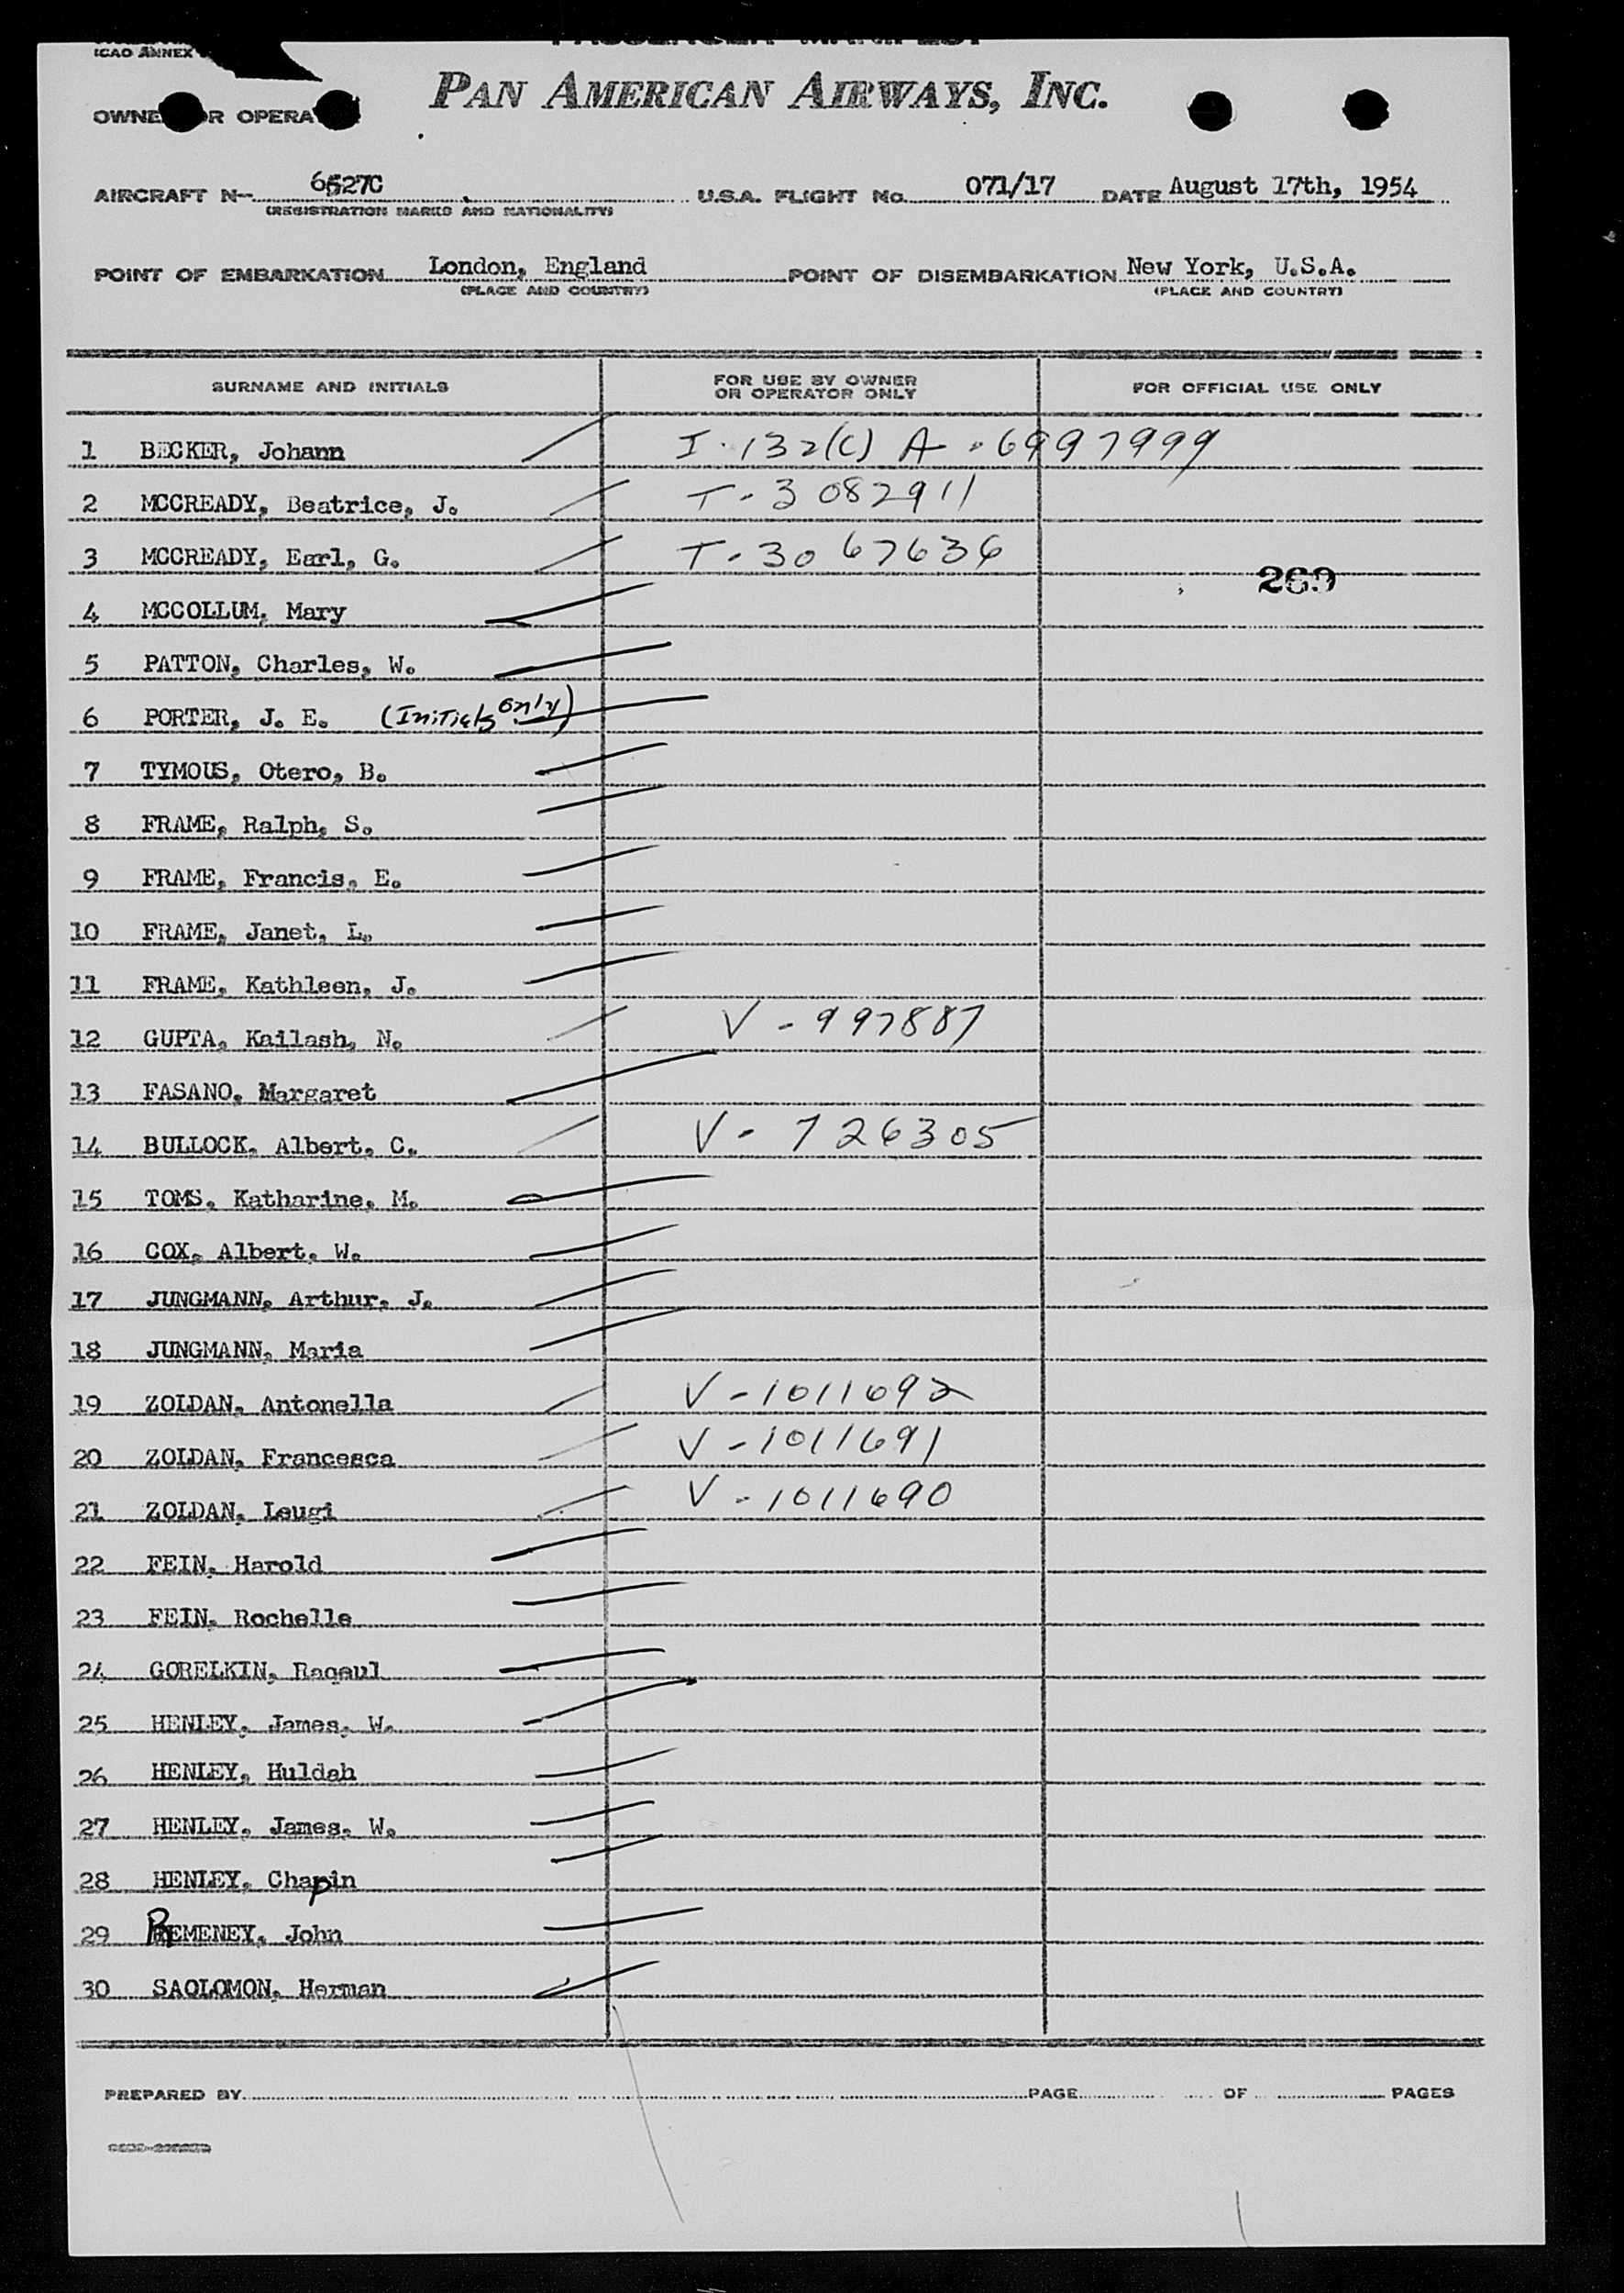 ICAO ANNEX
PASSENGER MANIFEST
OWNER OR OPERATOR PAN AMERICAN AIRWAYS, INC.
AIRCRAFT N- 6527C U.S.A. FLIGHT No. 071/17 DATE August 17th, 1954
(REGISTRATION MARKS AND NATIONALITY)
POINT OF EMBARKATION London, England POINT OF DISEMBARKATION New York, U.S.A.
(PLACE AND COUNTRY) (PLACE AND COUNTRY)
SURNAME AND INITIALS FOR USE BY OWNER OR OPERATOR ONLY FOR OFFICIAL USE ONLY
1 BECKER, Johann I-132(C) A-6997999
2 MCCREADY, Beatrice, J. T-3082911
3 MCCREADY, Earl, G. T-3067636
269
4 MCCOLLUM, Mary
5 PATTON, Charles, W.
6 PORTER, J. E. (Initials only)
7 TYMOUS, Otero, B.
8 FRAME, Ralph, S.
9 FRAME, Francis, E.
10 FRAME, Janet, L.
11 FRAME, Kathleen, J.
12 GUPTA, Kailash, N. V-997887
13 FASANO, Margaret
14 BULLOCK, Albert, C. V-726305
15 TOMS, Katharine, M.
16 COX, Albert, W.
17 JUNGMANN, Arthur, J.
18 JUNGMANN, Maria
19 ZOLDAN, Antonella V-1011692
20 ZOLDAN, Francesca V-1011691
21 ZOLDAN, Leugi V-1011690
22 FEIN, Harold
23 FEIN, Rochelle
24 GORELKIN, Raqaul
25 HENLEY, James, W.
26 HENLEY, Huldah
27 HENLEY, James, W.
28 HENLEY, Chapin
29 REMENEY, John
30 SAOLOMON, Herman
PREPARED BY PAGE OF PAGES